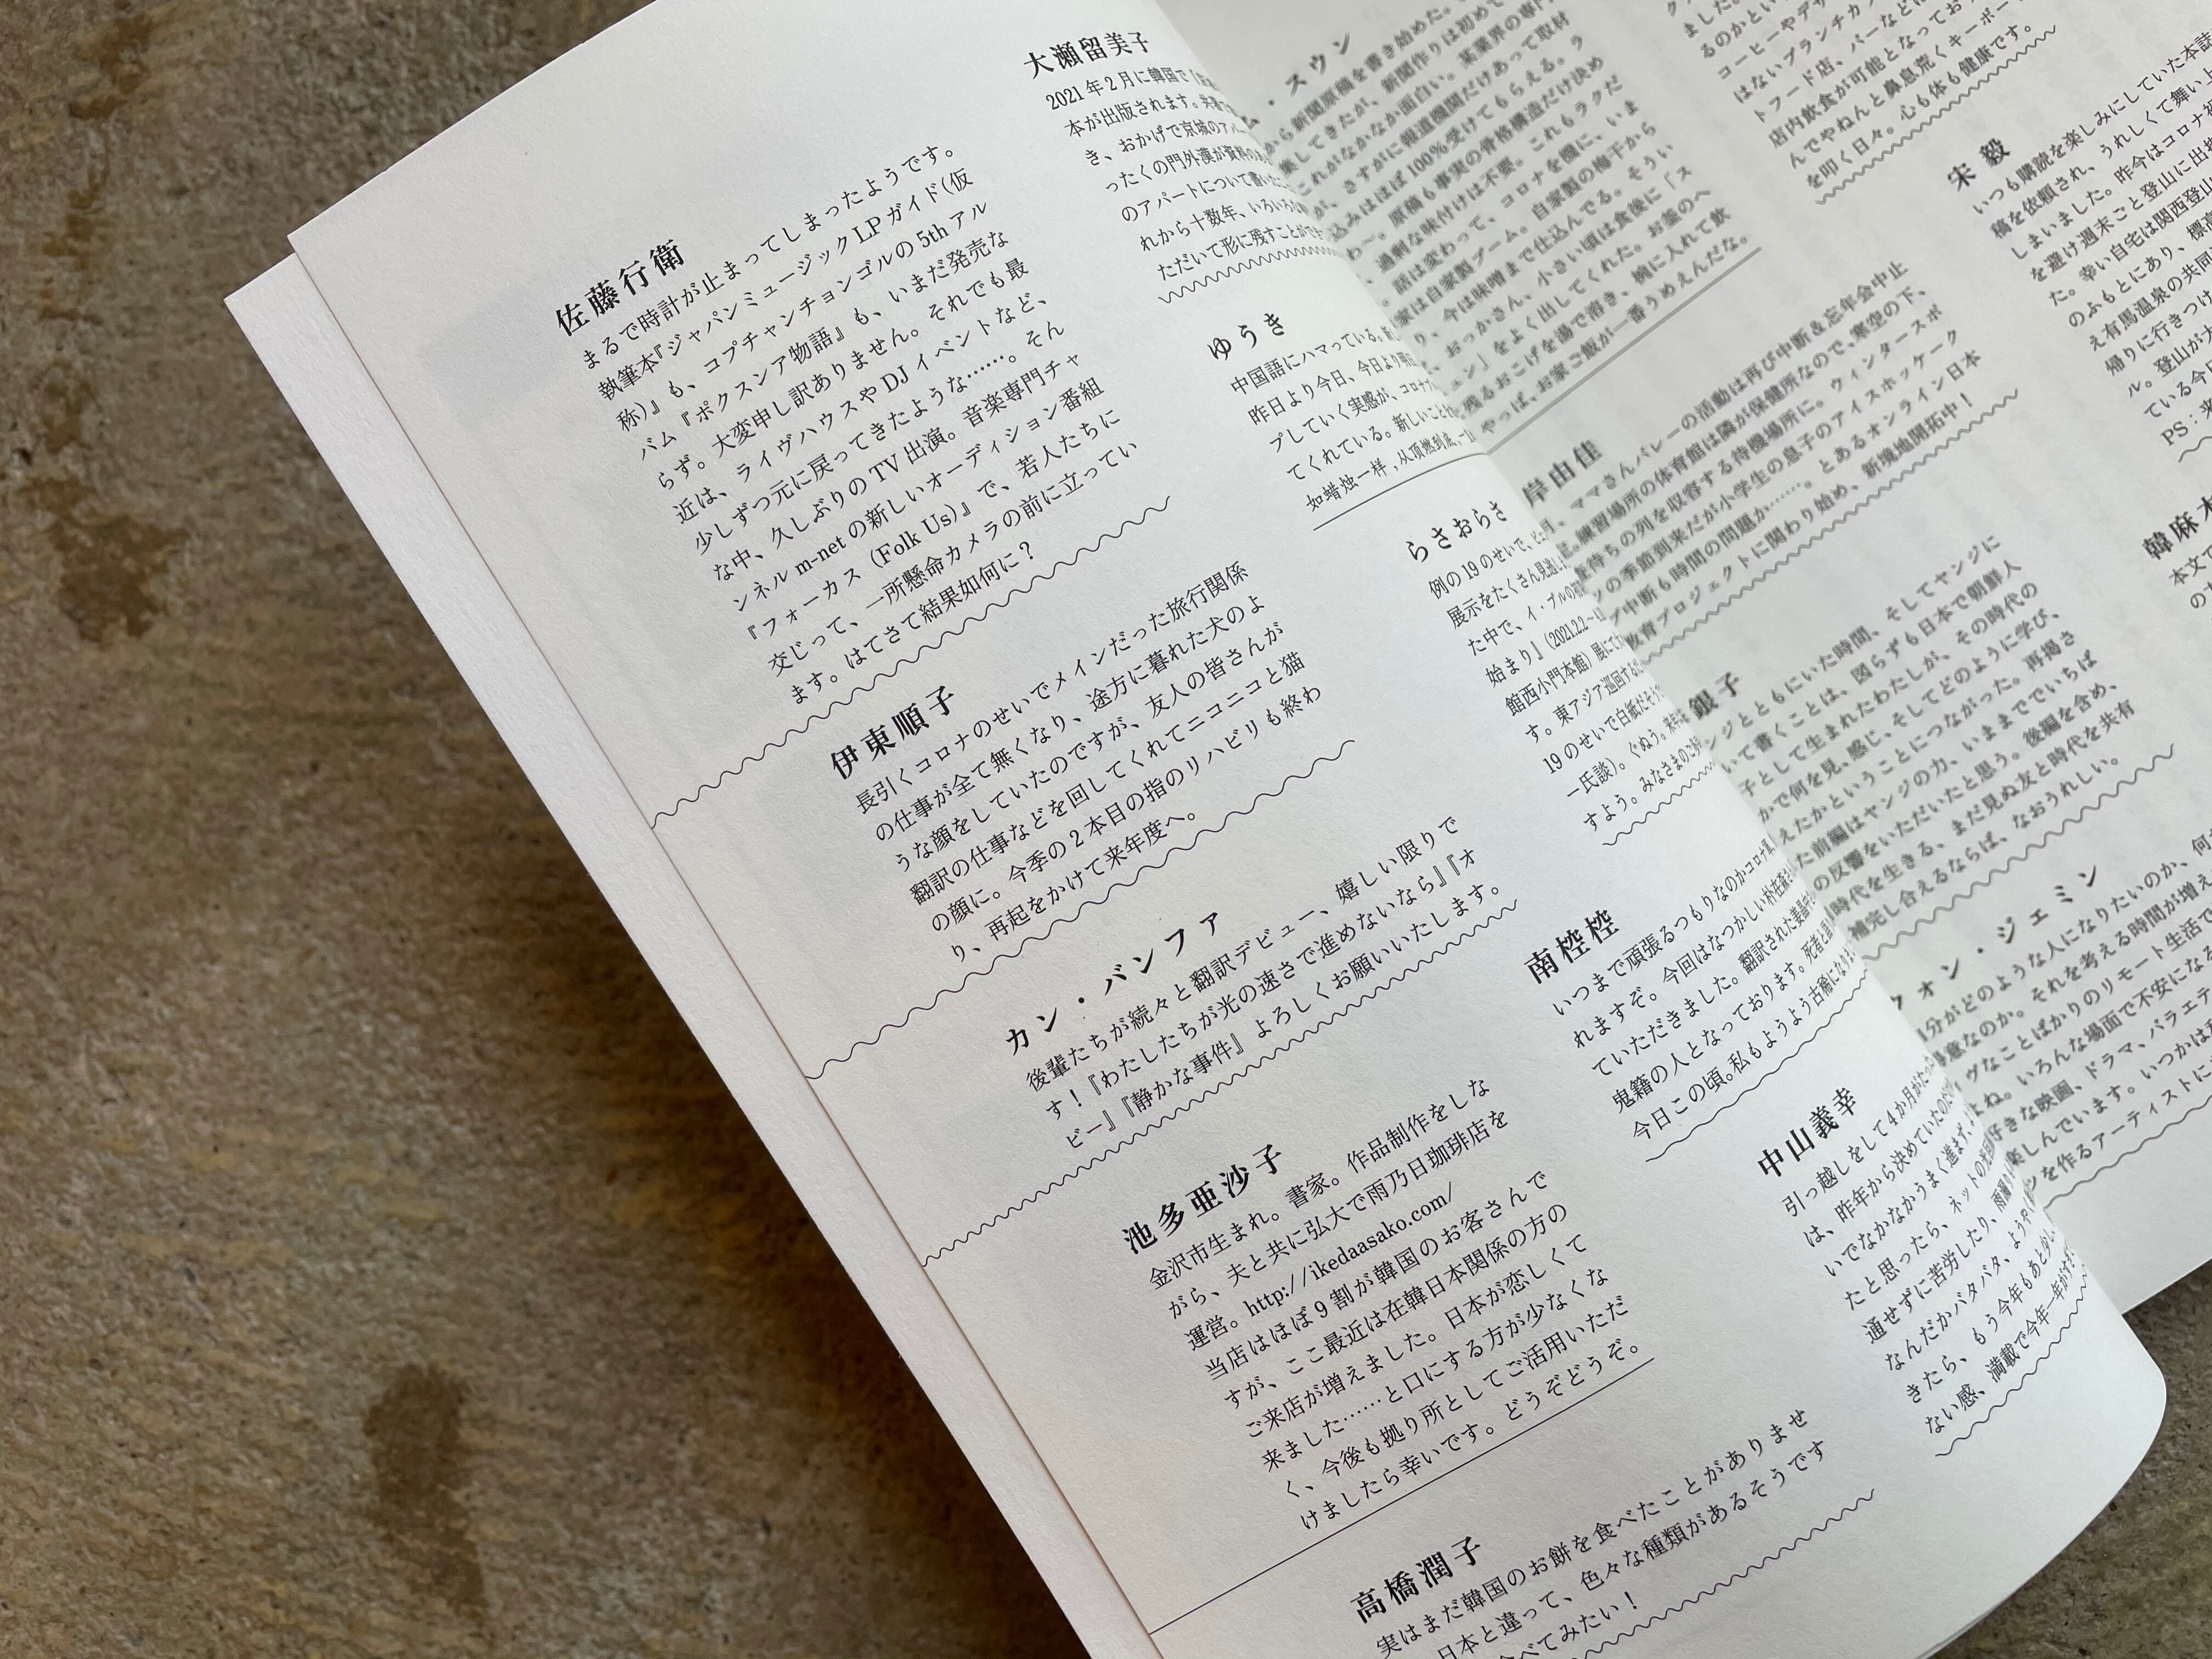 佐藤行衛
まるで時計が止まってしまったようです。
執筆本『ジャパンミュージックLPガイド(仮
称)』も、コプチャンチョンゴルの5thアル
バム『ポクスンア物語』も、いまだ発売な
らず。大変申し訳ありません。それでも最
近は、ライヴハウスやDJイベントなど、
少しずつ元に戻ってきたような……。そん
な中、久しぶりのTV出演。音楽専門チャ
ンネルm-netの新しいオーディション番組
『フォーカス（Folk Us）』で、若人たちに
交じって、一所懸命カメラの前に立ってい
ます。はてさて結果如何に？
伊東順子
長引くコロナのせいでメインだった旅行関係
の仕事が全て無くなり、途方に暮れた犬のよ
うな顔をしていたのですが、友人の皆さんが
翻訳の仕事などを回してくれてニコニコと猫
の顔に。今季の2本目の指のリハビリも終わ
り、再起をかけて来年度へ。
カン・バンファ
後輩たちが続々と翻訳デビュー、嬉しい限りで
す！『わたしたちが光の速さで進めないなら』『オ
ビー』『静かな事件』よろしくお願いいたします。
池多亜沙子
金沢市生まれ。書家。作品制作をしな
がら、夫と共に弘大で雨乃日珈琲店を
運営。http://ikedaasako.com/
当店はほぼ9割が韓国のお客さんで
すが、ここ最近は在韓日本関係の方の
ご来店が増えました。日本が恋しくて
来ました……と口にする方が少なくな
く、今後も拠り所としてご活用いただ
けましたら幸いです。どうぞどうぞ。
高橋潤子
実はまだ韓国のお餅を食べたことがありませ
日本と違って、色々な種類があるそうです
べてみたい！
大瀬留美子
2021年2月に韓国で
本が出版されます。
き、おかげで京城のア
ったくの門外漢が資料の
のアパートについて書い
れから十数年、いろいろ
ただいて形に残すことが
ゆうき
中国語にハマっている。
昨日より今日、今日より
プしていく実感が、コロナ
てくれている。新しいこと
如蜡烛一样，从顶燃到底
らさおらさ
例の19のせいで、
展示をたくさん見逃し
た中で、イ・ブルの
始まり』（2021.2.2～
館西小門本館）展に
す。東アジア巡回する
19のせいで白紙だそう
一氏談）。ぐぬう。
すよう。みなさまの
南椌椌
いつまで頑張るつもりなのかコロナ
れますぞ。今回はなつかしい朴在
ていただきました。翻訳された姜
鬼籍の人となっております。死者と
今日この頃。私もようよう古稀になり
中山義幸
引っ越しをして4か月がたっ
は、昨年から決めていたの
いでなかなかうまく進まず、
たと思ったら、ネットの光
通せずに苦労したり、雨
なんだかバタバタ、ようや
きたら、もう今年もあと少し
ない感、満載で今年一年が
・スウン
から新聞原稿を書き始めた。
集してきたが、新聞作りは初めて
これがなかなか面白い。某業界の専門
が、さすがに報道機関だけあって取材
込みはほぼ100%受けてもらえる。ラ
わ〜。原稿も事実の骨格構造だけ決め
過剰な味付けは不要。これもラクだ
。話は変わって、コロナを機に、いま
家は自家製ブーム。自家製の梅干から
り、今は味噌まで仕込んでる。そうい
、おっかさん、小さい頃は食後に「ス
ュン」をよく出してくれた。お釜のへ
残るおこげを湯で溶き、椀に入れて飲
やっぱ、お家ご飯が一番うめえんだな。
岸由佳
月、ママさんバレーの活動は再び中断＆忘年会中止
練習場所の体育館は隣が保健所なので、寒空の下、
待ちの列を収容する待機場所に。ウィンタースポ
ツの季節到来だが小学生の息子のアイスホッケーク
ブ中断も時間の問題か……。とあるオンライン日本
教育プロジェクトに関わり始め、新境地開拓中！
銀子
ンジとともにいた時間、そしてヤンジに
いて書くことは、図らずも日本で朝鮮人
子として生まれたわたしが、その時代の
かで何を見、感じ、そしてどのように学び、
えたかということにつながった。再掲さ
た前編はヤンジの力、いままででいちば
の反響をいただいたと思う。後編を含め、
時代を生きる、まだ見ぬ友と時代を共有
補完し合えるならば、なおうれしい。
ォン・ジェミン
分がどのような人になりたいのか、何
意なのか。それを考える時間が増え
ヴなことばかりのリモート生活で
よね。いろんな場面で不安になる
好きな映画、ドラマ、バラエテ
楽しんでいます。いつかは
ンを作るアーティストに
ました。
るのかとい
コーヒーやデザ
はないブランチカフ
トフード店、バーなどに
店内飲食が可能となってお
んでやねんと鼻息荒くキーボー
を叩く日々。心も体も健康です。
宋毅
いつも購読を楽しみにしていた本誌
稿を依頼され、うれしくて舞い上
しまいました。昨今はコロナ
を避け週末ごと登山に出
た。幸い自宅は関西登山
のふもとにあり、標高
え有馬温泉の共同
帰りに行きつけ
ル。登山が
ている今日
PS：来
韓麻木
本文で
の